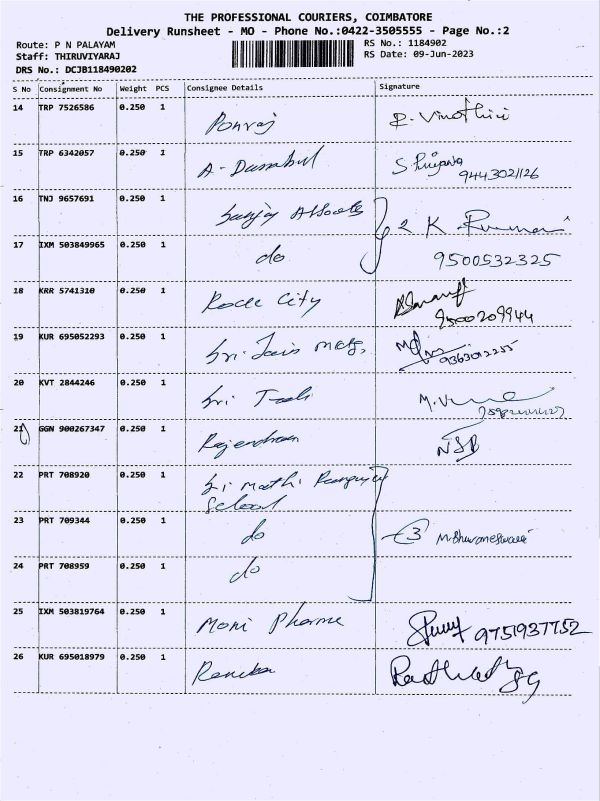 THE PROFESSIONAL COURIERS, COIMBATORE
Delivery Runsheet - MO - Phone No.:0422-3505555 - Page No.:2
Route: P N PALAYAM RS No.: 1184902
Staff: THIRUVIYARAJ RS Date: 09-Jun-2023
DRS No.: DCJB118490202
S No Consignment No Weight PCS Consignee Details Signature
14 TRP 7526586 0.250 1 Ponraj R. Vinothini
15 TRP 6342057 0.250 1 A- S. Priyanka 9443021126
16 TNJ 9657691 0.250 1 Sanjay Associates 2 K
17 IXM 503849965 0.250 1 do 9500532325
18 KRR 5741310 0.250 1 Rock City 9500209944
19 KUR 695052293 0.250 1 Sri Jain 9363012255
20 KVT 2844246 0.250 1 Sri M.
21 GGN 900267347 0.250 1 Rajendran NSB
22 PRT 708920 0.250 1 Sri Mathi
School
23 PRT 709344 0.250 1 do 3 M. Bhuvaneswari
24 PRT 708959 0.250 1 do
25 IXM 503819764 0.250 1 Moni Pharma 9751937752
26 KUR 695018979 0.250 1